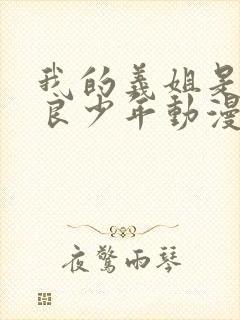 我的義姐是
良少年動漫
夜驚雨琴